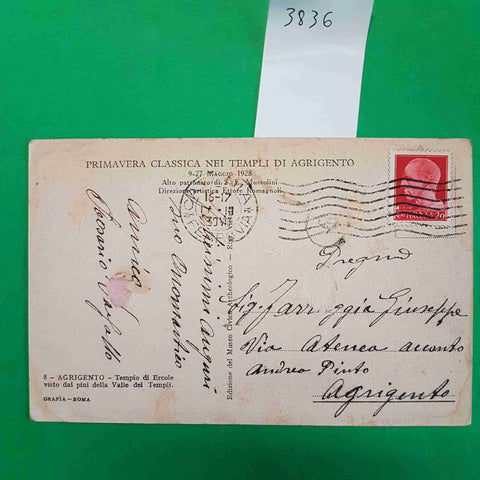 3836
PRIMAVERA CLASSICA NEI TEMPLI DI AGRIGENTO
9-27 MAGGIO 1928
Alto patronato di S. E. Mussolini
Direzione artistica Ettore Romagnoli
Pregmo
Sig. Farruggia Giuseppe
Via Atenea accanto
Andrea Pinto
Agrigento
Edizione del Museo Civico Archeologico - Rig. Vie
Auguri
suo Onomastico
amico
8 - AGRIGENTO - Tempio di Ercole
visto dai pini della Valle dei Templi.
GRAFIA - ROMA